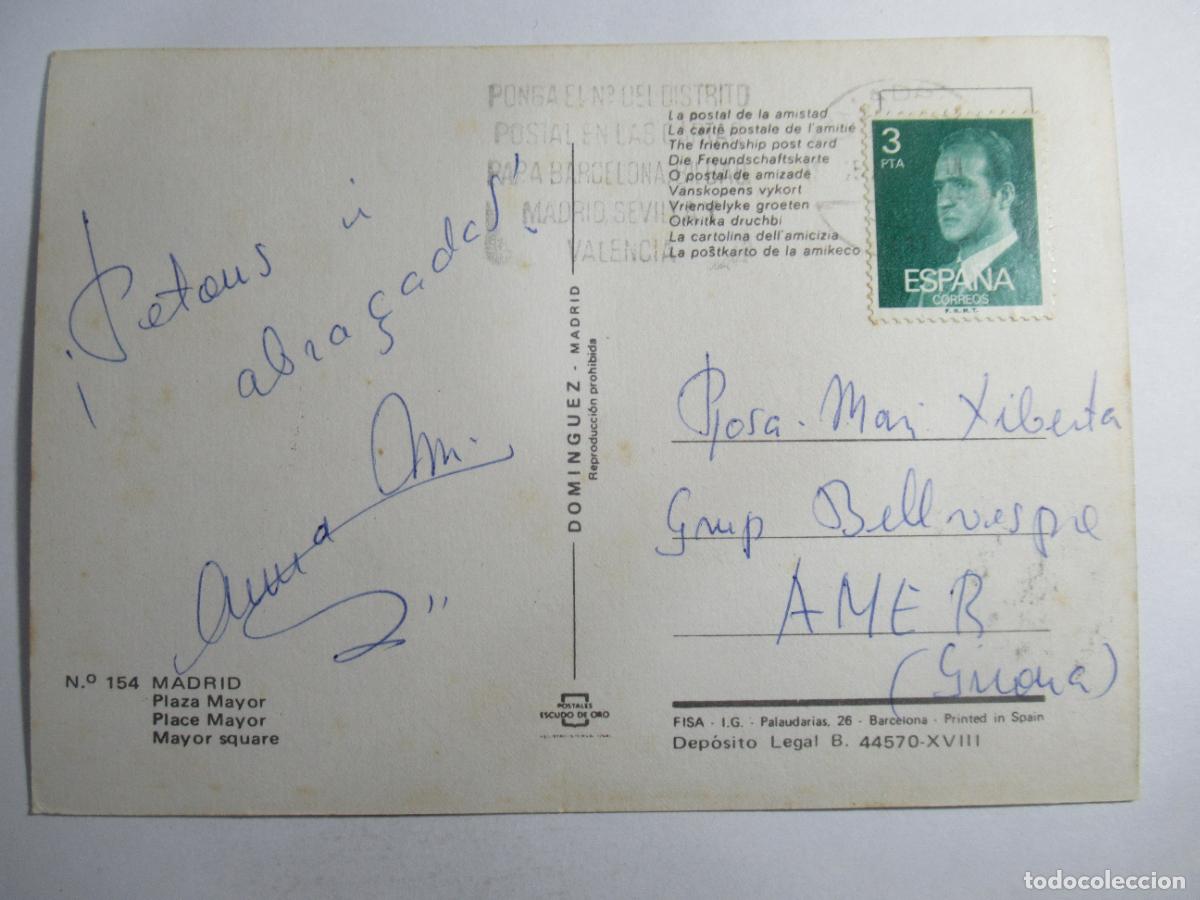 PONGA EL Nº DEL DISTRITO
POSTAL EN LAS CARTAS
PARA BARCELONA,
MADRID, SEVILLA
VALENCIA
La postal de la amistad
La carte postale de l'amitié
The friendship post card
Die Freundschaftskarte
O postal de amizade
Vanskopens vykort
Vriendelyke groeten
Otkritka druchbi
La cartolina dell'amicizia
La poŝtkarto de la amikeco
3
PTA
ESPAÑA
CORREOS
F.N.M.T.
¡Petons i
abraçadas!
Anna
DOMINGUEZ - MADRID
Reproducción prohibida
Rosa-Mari Xiberta
Grup Bellvespre
AMER
(Girona)
N.º 154 MADRID
Plaza Mayor
Place Mayor
Mayor square
POSTALES
ESCUDO DE ORO
FISA - I.G. - Palaudarias, 26 - Barcelona - Printed in Spain
Depósito Legal B. 44570-XVIII
todocoleccion